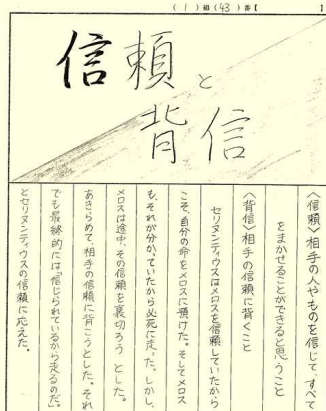 ( 1 )組(43)番【 】
信頼と
背信
〈信頼〉相手の人やものを信じて、すべて
をまかせることができると思うこと
〈背信〉相手の信頼に背くこと
セリヌンティウスはメロスを信頼していたから
こそ、自分の命をメロスに預けた。そしてメロス
も、それが分かっていたから必死に走った。しかし、
メロスは途中、その信頼を裏切ろうとした。
あきらめて、相手の信頼に背こうとした。それ
でも最終的には「信じられているから走るのだ」。
とセリヌンティウスの信頼に応えた。